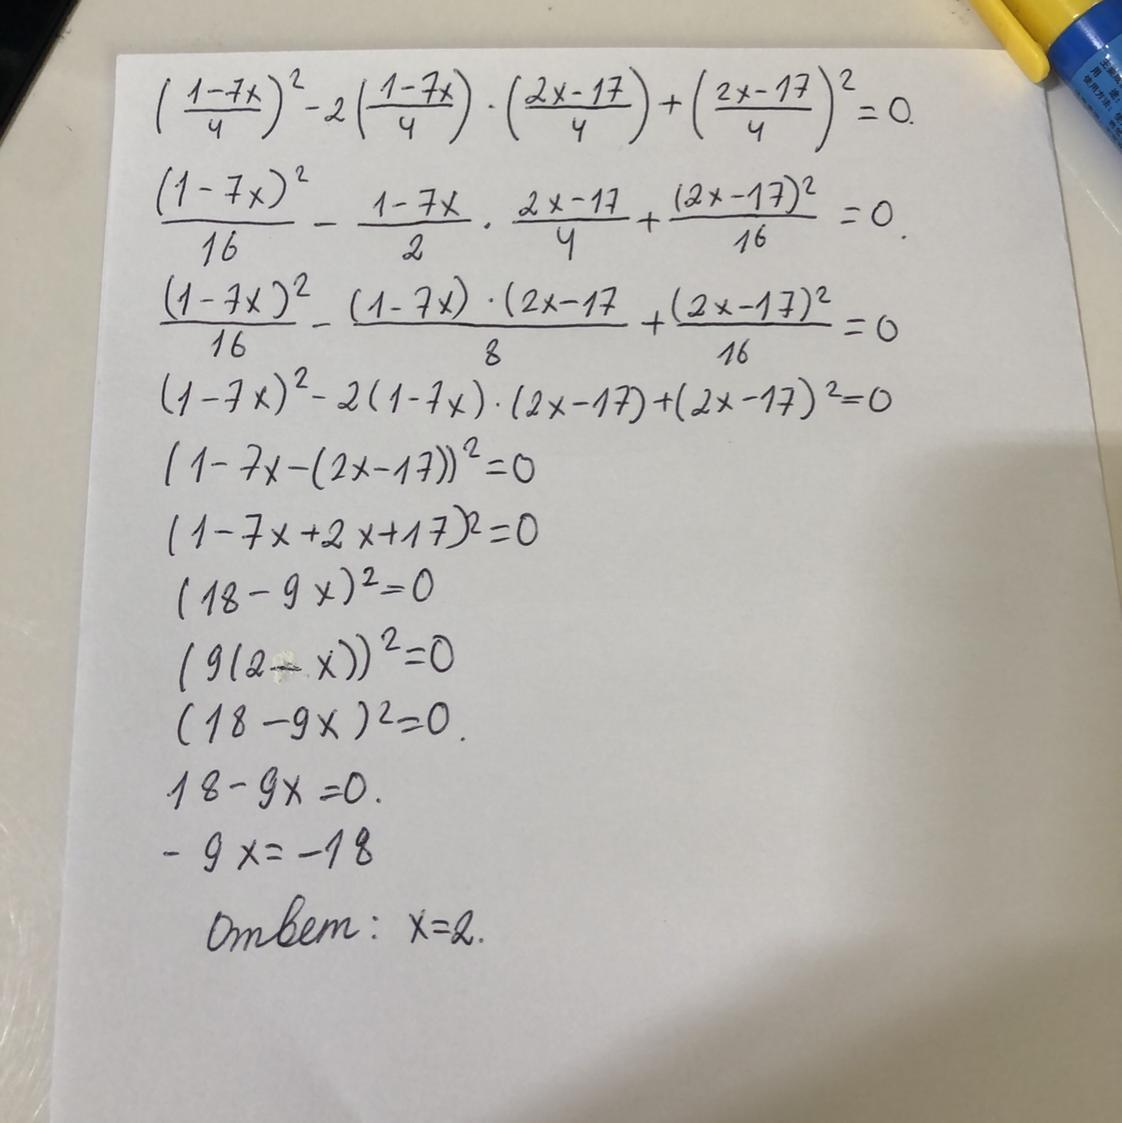 (1-7x/4)² - 2(1-7x/4) · (2x-17/4) + (2x-17/4)² = 0.
(1-7x)²/16 - 1-7x/2 · 2x-17/4 + (2x-17)²/16 = 0.
(1-7x)²/16 - (1-7x)·(2x-17/8 + (2x-17)²/16 = 0
(1-7x)² - 2(1-7x)·(2x-17)+(2x-17)²=0
(1-7x-(2x-17))²=0
(1-7x+2x+17)²=0
(18-9x)²=0
(9(2-x))²=0
(18-9x)²=0.
18-9x=0.
-9x=-18
Ответ: x=2.